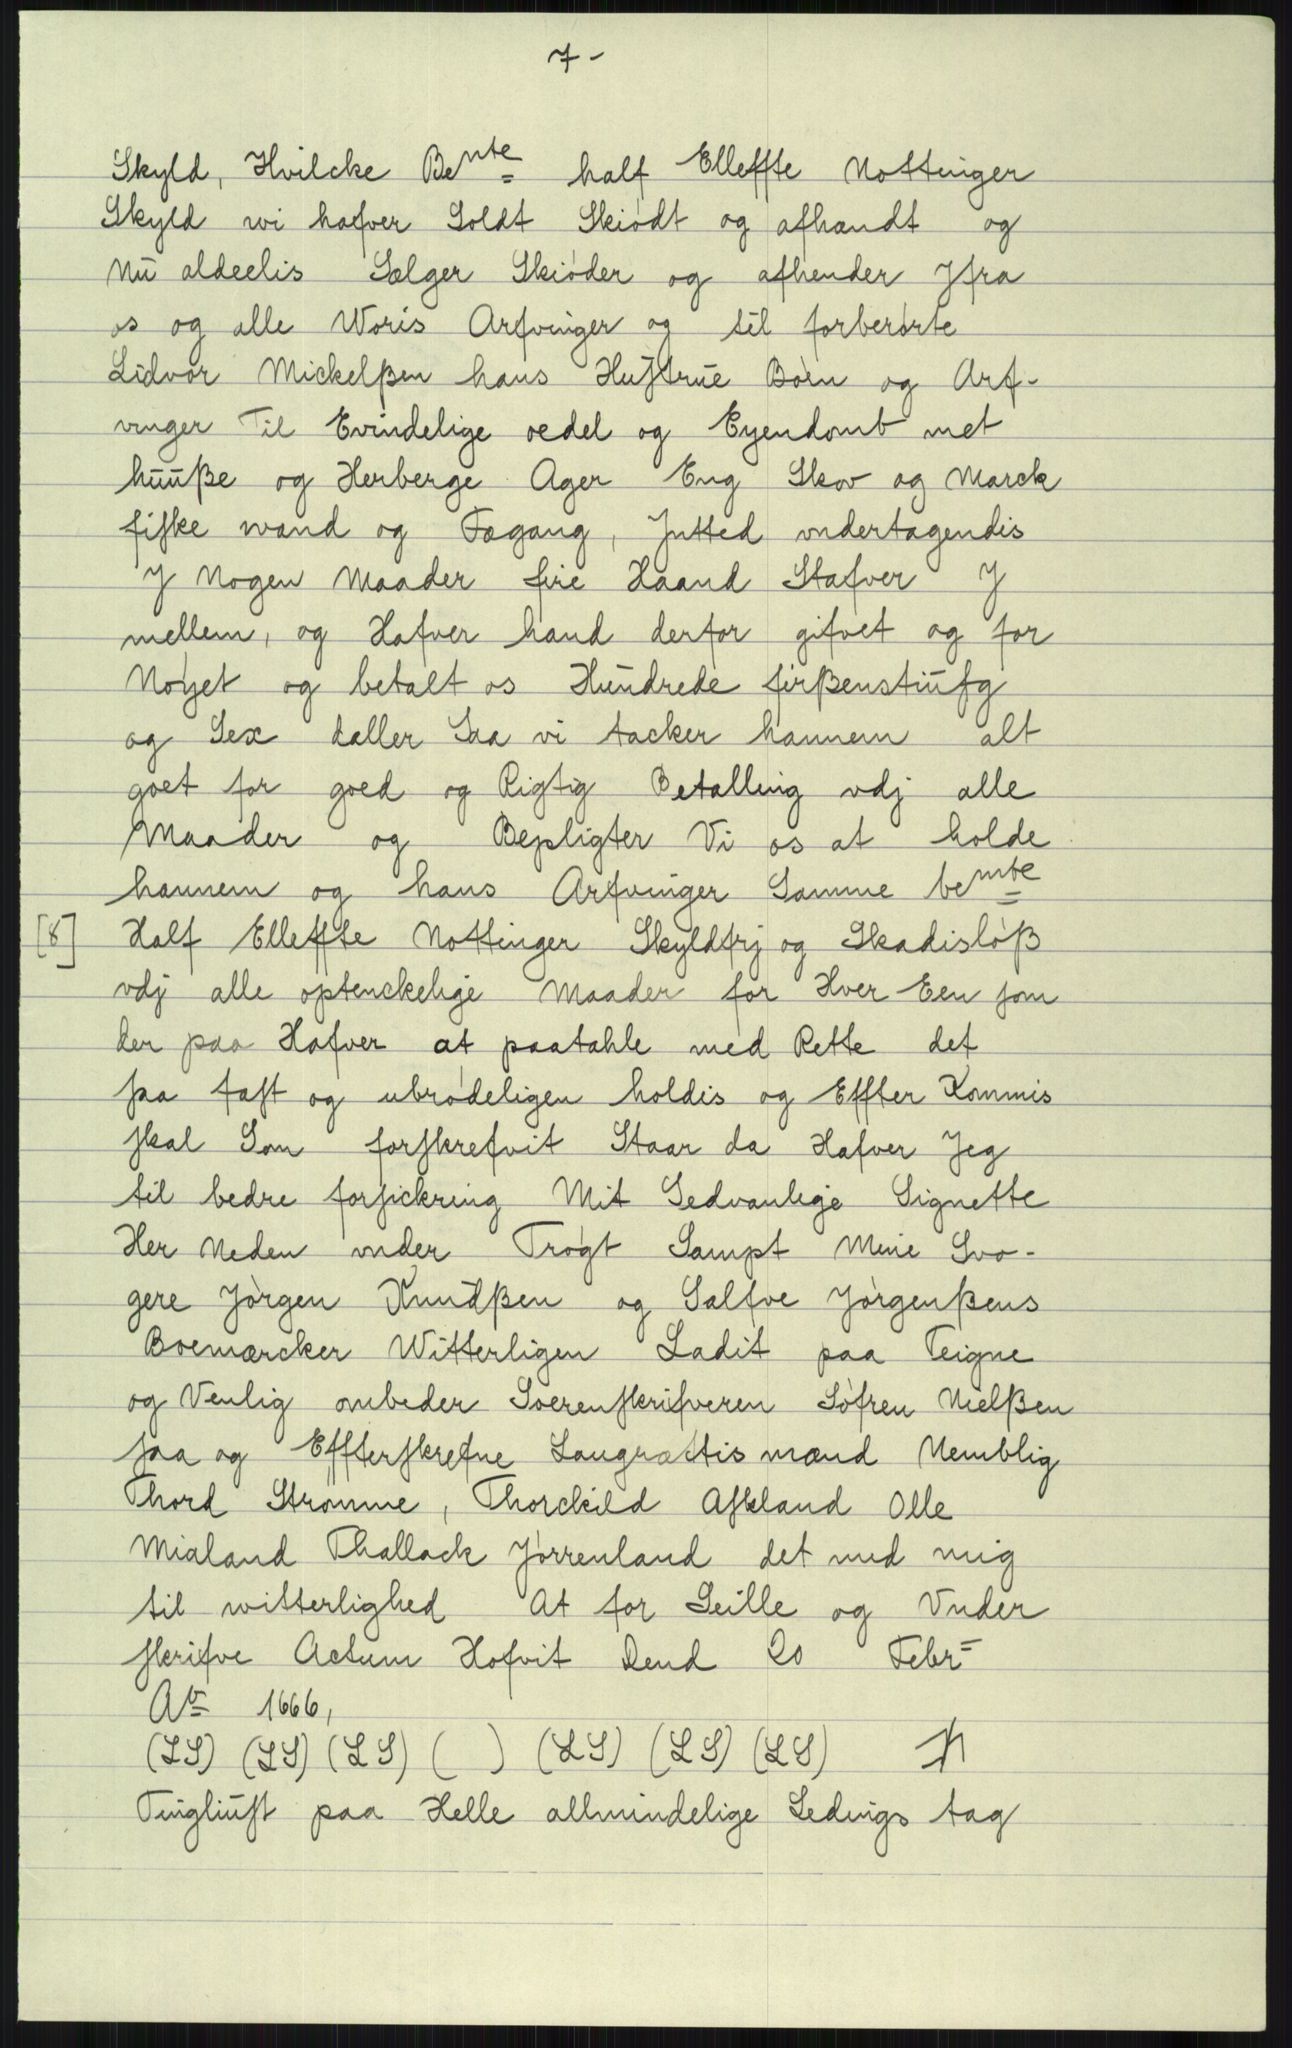 7-
Skyld, Hvilcke Bente half Elleffte Nottinger
Skyld wi hafver Soldt Skiødt og afhændt og
Nu aldeelis Sælger Skiøder og afhender Jfra
os og alle Woris Arfvinger og til forberørte
Lidvor Mickelßen hans Hustrue Børn og Arf-
vinger Til Evindelige oedel og Eyendomb met
huuße og Herberge Ager Eng Skov og Marck
fiske wand og Fægang, Jntted vndertagendis
J Nogen Maader fire Haand Stafver J
mellem, og Hafver hand derfor gifvet og for
Nøyet og betalt os Hundrede firßenstiufg
og Sex daller Saa vi tacker hannem alt
goet for goed og Rigtig Betalling vdj alle
Maader og Bepligter Vi os at holde
hannem og hans Arfvinger Samme bemte
[8] Half Elleffte Nottinger Skyldfrj og Skadisløß
vdj alle optenckelige Maader for Hver Een som
der paa Hafver at paatahle med Rette det
saa fast og ubrødeligen holdis og Effter Kommis
skal Som forskrefvit Staar da Hafver Jeg
til bedre forsickring Mit Sedvanlige Signette
Her Neden vnder Trøgt Sampt Mine Svo-
gere Jørgen Knudßen og Salfve Jørgenßens
Boemærcker Witterligen Ladit paa Teigne
og Venlig ombeder Soerenskrifveren Søfren Nielßen
saa og Effterskrefne Laugrættis mænd Nemblig
Thord Strømme, Thorckild Askland Olle
Mialand Thallack Jørrenland det med mig
til witterlighed At for Seille og Vnder
skrifve Actum Hofvit Dend 20 Febr
Ao 1666,
(LS) (LS) (LS) ( ) (LS) (LS) (LS)
Tingliust paa Helle allmindelige Ledings tag